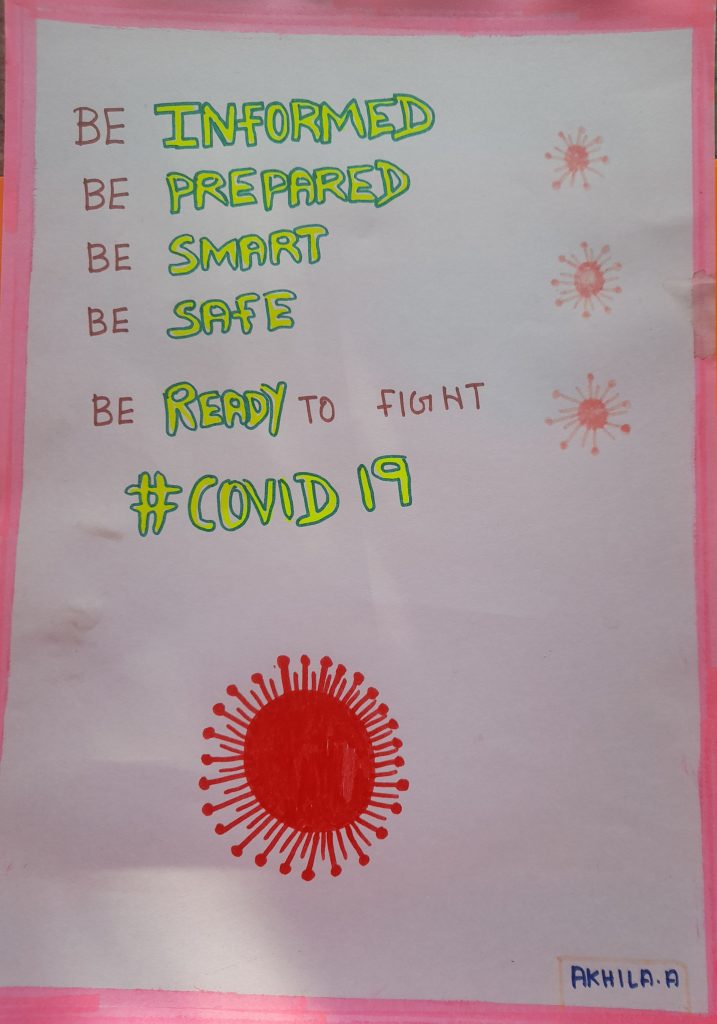 BE INFORMED
BE PREPARED
BE SMART
BE SAFE
BE READY TO FIGHT
#COVID 19
AKHILA.A